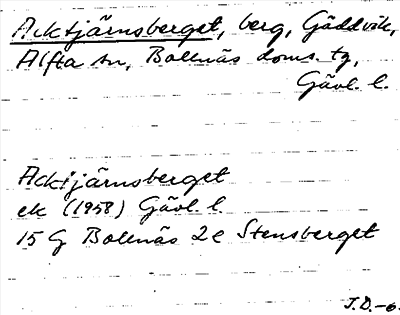 Acktjärnsberget, berg, Gäddvik,
Alfta sn, Bollnäs doms. tg,
Gävl. l.
Acktjärnsberget
ek (1958) Gävl. l.
15 G Bollnäs 2e Stensberget
J.D.-6.